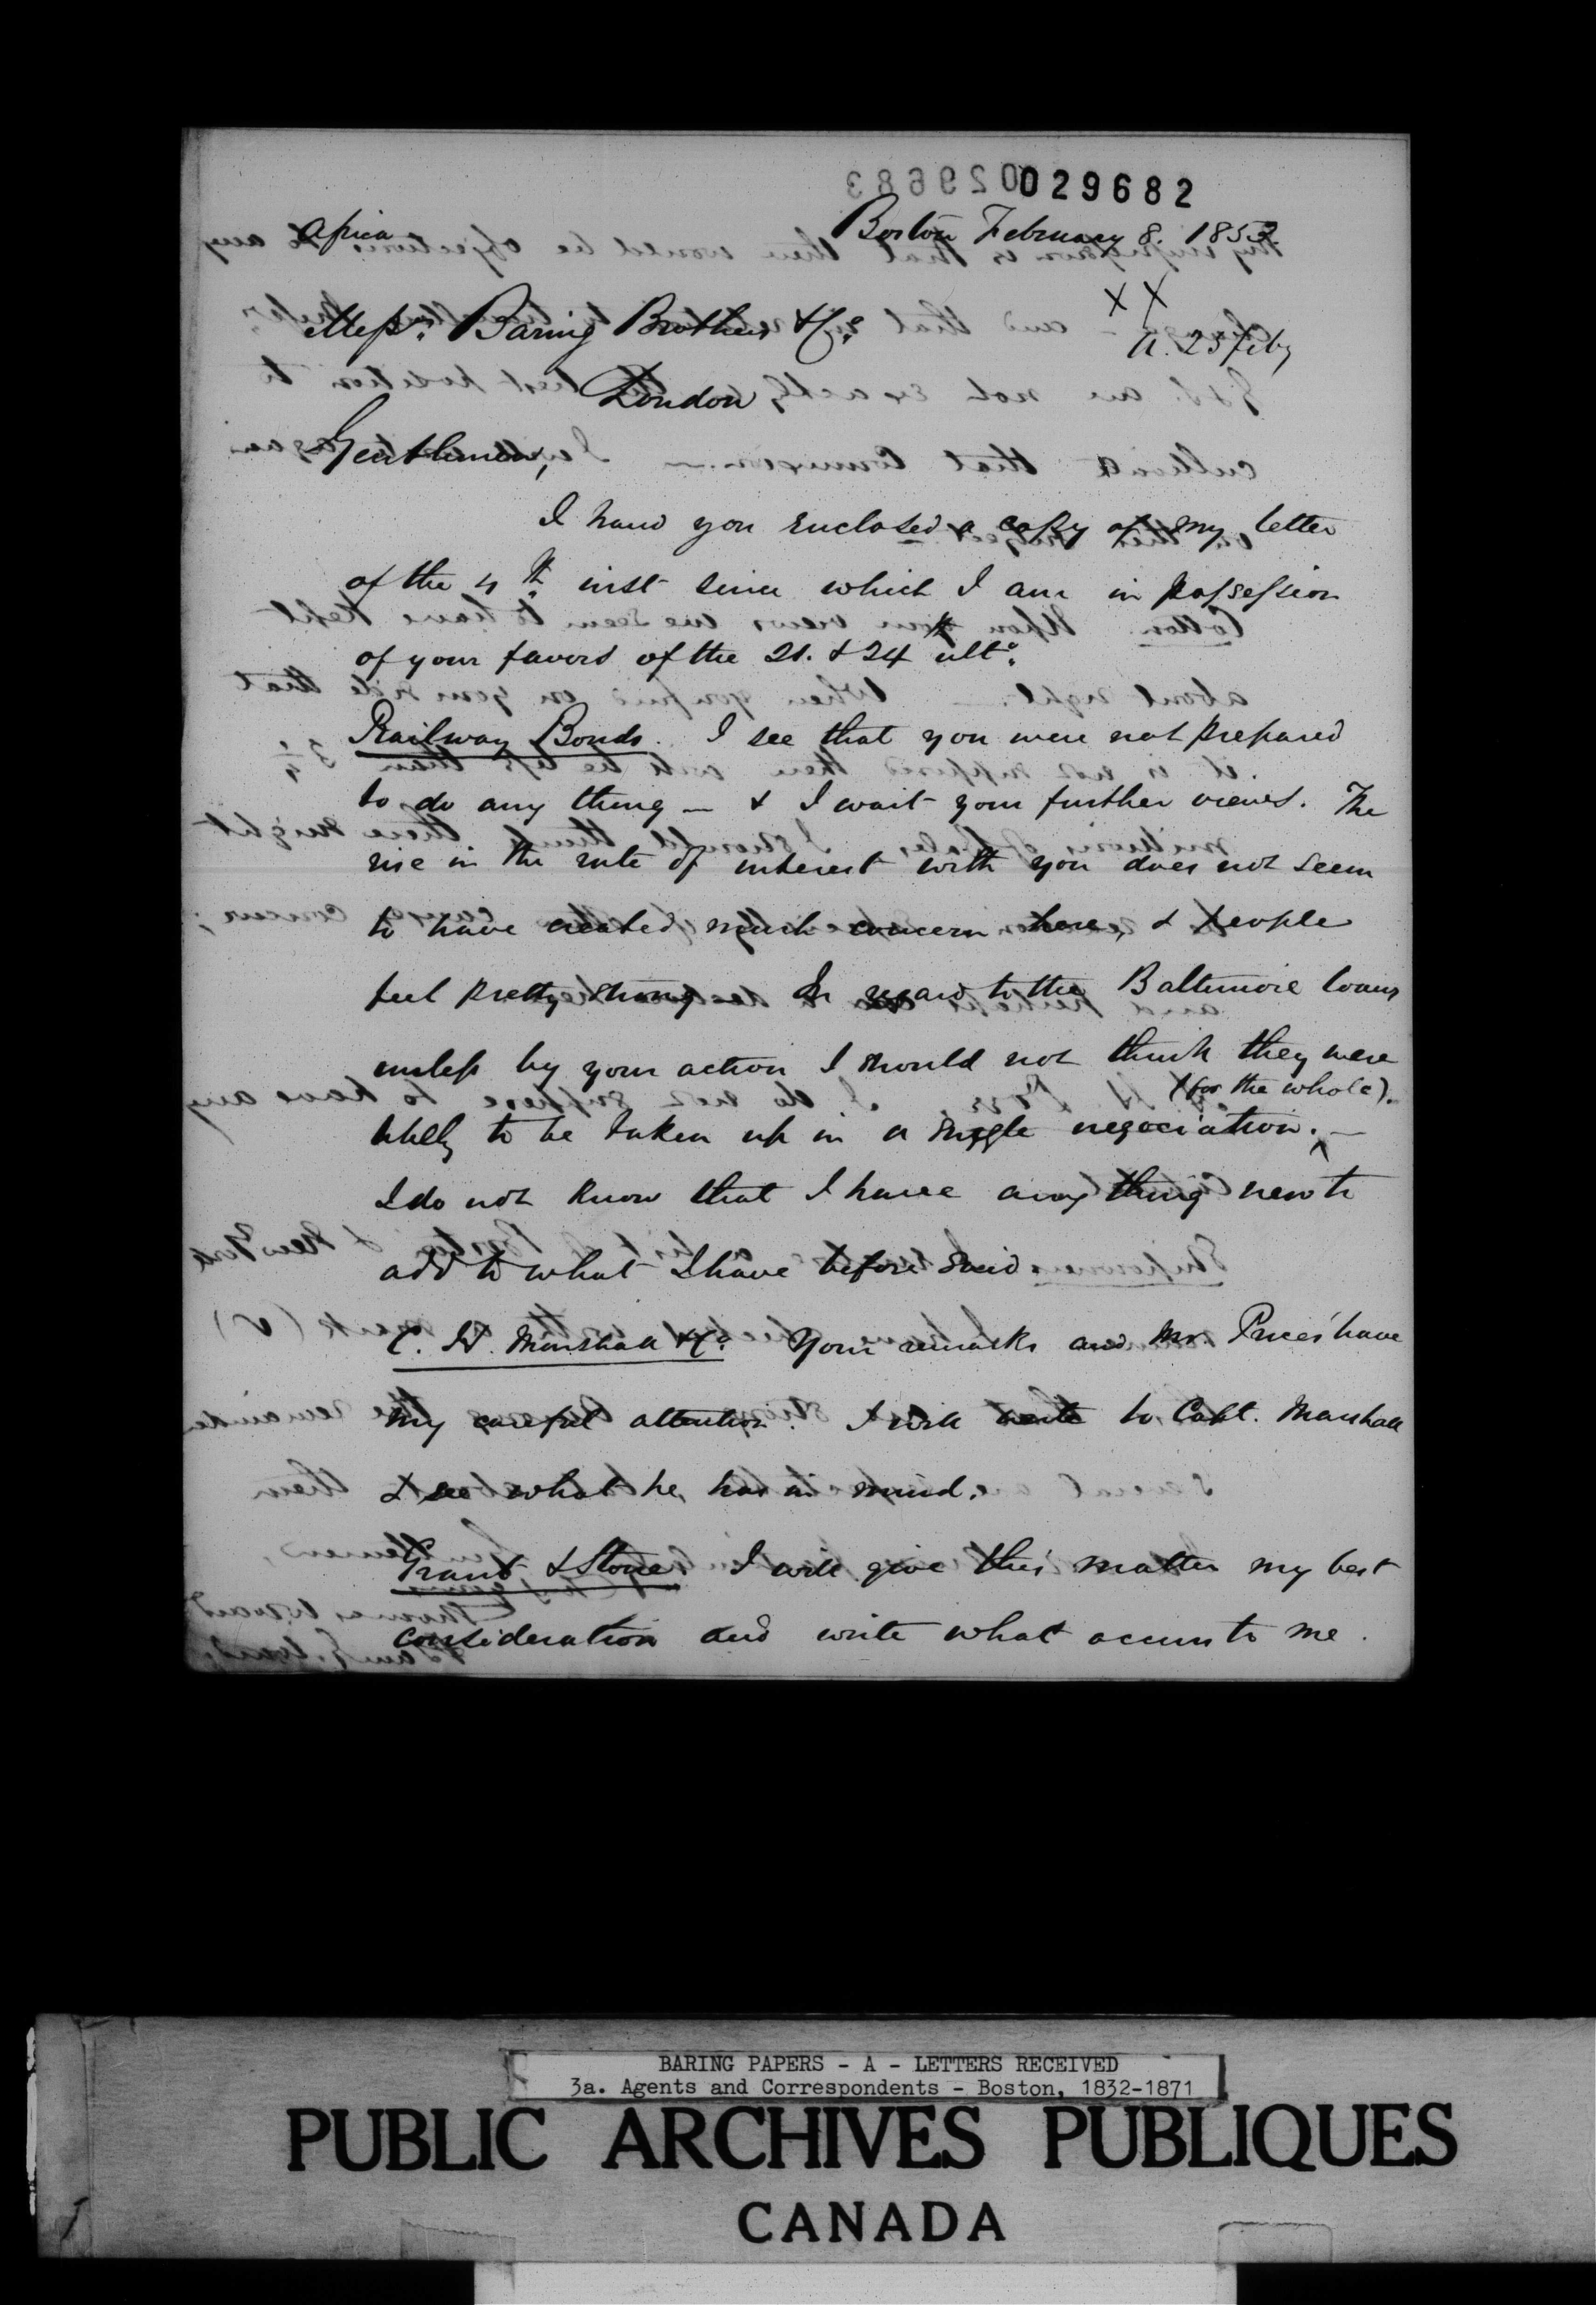 029682
Africa
Boston February 8. 1853.
XX
A. 25 Feby
Messrs. Baring Brothers & Co.
London
Gentlemen,
I hand you enclosed a copy of my letter
of the 4th. inst since which I am in possession
of your favors of the 21. & 24th ulto.
Railway Bonds. I see that you were not prepared
to do any thing — & I wait your further views. The
rise in the rate of interest with you does not seem
to have created much concern here, & people
feel pretty strong — In regard to the Baltimore loans
unless by your action I should not think they were
(for the whole).
likely to be taken up in a single negociation. —
I do not know that I have any thing new to
add to what I have before said.
C. H. Marshall & Co. Your remarks and Mr. Prices' have
my careful attention. I will write to Capt. Marshall
& see what he has in mind.
Grant & Stone. I will give this matter my best
consideration and write what occurs to me.
BARING PAPERS - A - LETTERS RECEIVED
3a. Agents and Correspondents - Boston, 1832-1871
PUBLIC ARCHIVES PUBLIQUES
CANADA